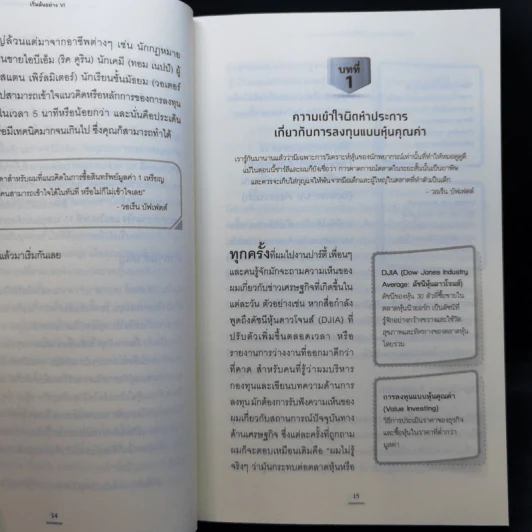 เริ่มต้นอย่าง VI
ญล้วนแต่มาจากอาชีพต่างๆ เช่น นักกฎหมาย
นขายไอบีเอ็ม (ริค คูริน) นักเคมี (ทอม เนปป์) ผู้
สแตน เพิร์ลมิเตอร์) นักเรียนชั้นมัธยม (วอเตอร์
ปสามารถเข้าใจแนวคิดหรือหลักการของการลงทุน
นเวลา 5 นาทีหรือน้อยกว่า และนั่นคือประเด็น
งมีเทคนิคมากจนเกินไป ซึ่งคุณก็สามารถทำได้
าสำหรับผมที่แนวคิดในการซื้อสินทรัพย์มูลค่า 1 เหรียญ
คนสามารถเข้าใจได้ในทันที หรือไม่ก็ไม่เข้าใจเลย"
- วอเร็น บัฟเฟตต์
แล้วมาเริ่มกันเลย
14
บทที่
1
ความเข้าใจผิดห้าประการ
เกี่ยวกับการลงทุนแบบหุ้นคุณค่า
- วอเร็น บัฟเฟตต์
ทุกครั้งที่ผมไปงานปาร์ตี้ เพื่อนๆ
และคนรู้จักมักจะถามความเห็นของ
ผมเกี่ยวกับข่าวเศรษฐกิจที่เกิดขึ้นใน
แต่ละวัน ตัวอย่างเช่น หากสื่อกำลัง
พูดถึงดัชนีหุ้นดาวโจนส์ (DJIA) ที่
ปรับตัวเพิ่มขึ้นตลอดเวลา หรือ
รายงานการว่างงานที่ออกมาดีกว่า
ที่คาด สำหรับคนที่รู้ว่าผมบริหาร
กองทุนและเขียนบทความด้านการ
ลงทุน มักต้องการรับฟังความเห็นของ
ผมเกี่ยวกับสถานการณ์ปัจจุบันทาง
ด้านเศรษฐกิจ ซึ่งแต่ละครั้งที่ถูกถาม
ผมก็จะตอบเหมือนเดิมคือ "ผมไม่รู้
จริงๆ ว่ามันกระทบต่อตลาดหุ้นหรือ
DJIA (Dow Jones Industry
Average: ดัชนีหุ้นดาวโจนส์)
ดัชนีของหุ้น 30 ตัวที่ซื้อขายใน
ตลาดหุ้นนิวยอร์ก เป็นดัชนีที่
รู้จักอย่างกว้างขวางและใช้วัด
สุขภาพและทิศทางของตลาดหุ้น
โดยรวม
การลงทุนแบบหุ้นคุณค่า
(Value Investing)
วิธีการประเมินราคาของธุรกิจ
และซื้อหุ้นในราคาที่ต่ำกว่า
มูลค่า
15